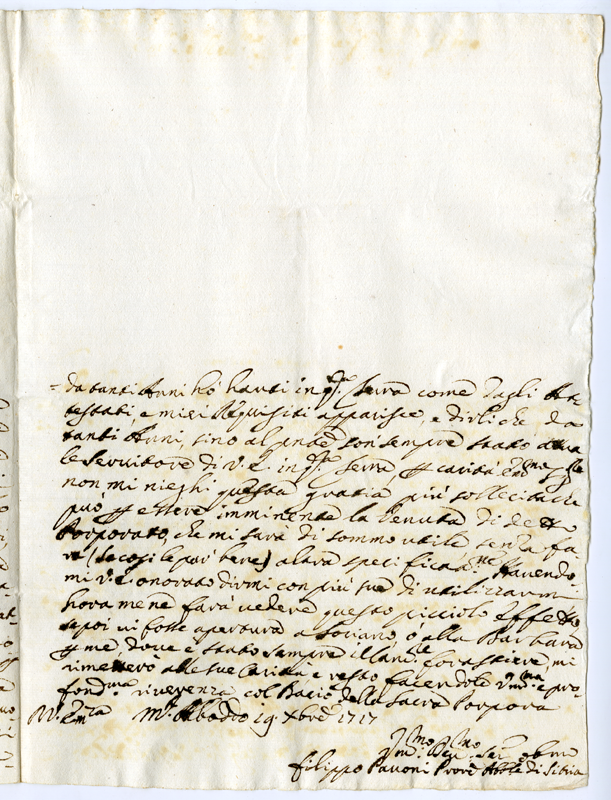 = da tanti Anni hò hauti in q.ta Terra come dagli At
testati, e miei Requisiti apparisce, e dirli che da
tanti Anni, sino al pnte son sempre stato attua
le Seruitore di V. E. in q.ta Terra, p carità
non mi nieghi questa gratia più sollecita che
può p essere imminente la Venuta di detto
Porporato, che mi sarà di sommo utile, senza fa
re (se così le par bene) alcuna specifica Hauendo
mi V. E. onorato dirmi con più sue di utilizzarmi
hora me ne farà uedere questo picciolo effetto
se poi ui fosse apertura a Soriano, o alla Barbara
p me, doue è stato sempre il Forastiere, mi
rimetterò alle sue Carità, e resto facendole e pro
fond.ma riuerenza col Bacio della Sacra Porpora
Di V. Em.za M.te Abbadio 19 Xbre 1717
Filippo Pauoni